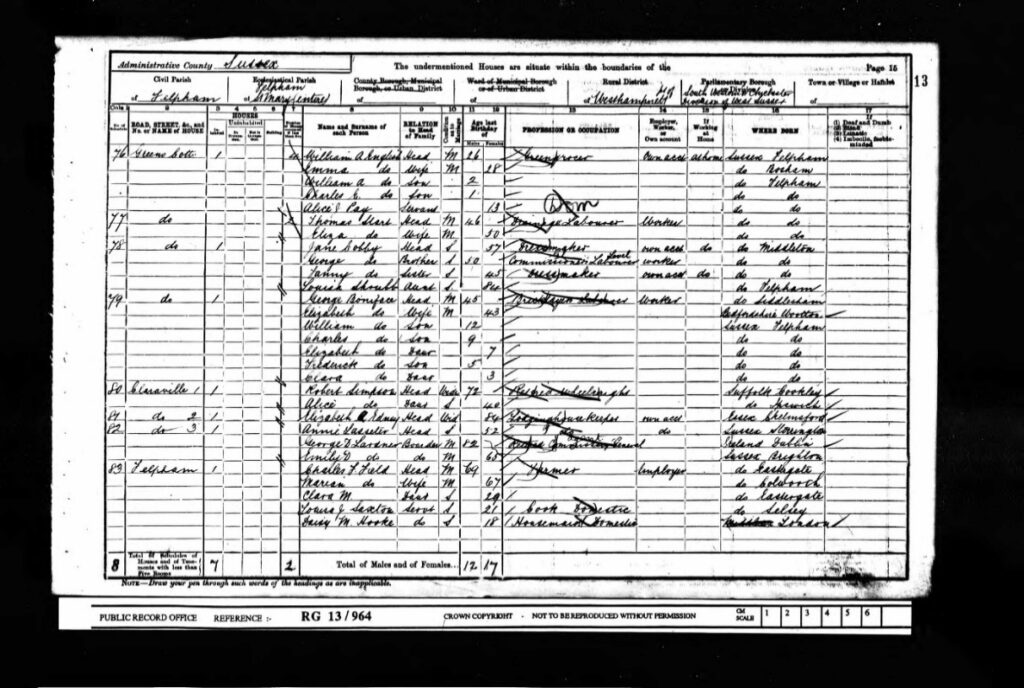 Administrative County Sussex The undermentioned Houses are situate within the boundaries of the Page 15
13
Civil Parish Ecclesiastical Parish County Borough, Municipal Borough, or Urban District Ward of Municipal Borough or of Urban District Rural District Parliamentary Borough Town or Village or Hamlet
of Felpham Felpham of St Mary of Westhampnett 79 Division of West Sussex of
ROAD, STREET, &c., and No. or NAME of HOUSE HOUSES Name and Surname of each Person RELATION to Head of Family Age last Birthday of PROFESSION OR OCCUPATION Employer, Worker, or Own account If Working at Home WHERE BORN (1) Deaf and Dumb (2) Blind (3) Lunatic (4) Imbecile, feeble-minded
76 Greens Cotts 1 William A English Head M 26 Greengrocer own acct at home Sussex Felpham
Emma do Wife M 28 do Bosham
William A do Son 2 do Felpham
Charles E. do Son 1 do do
Alice E Pay Servant 13 Dom do do
77 do 1 Thomas Hart Head M 46 Drainage Labourer Worker do do
Eliza do Wife M 50 do do
78 do 1 Jane Cobby Head S 57 Dressmaker own acct do do Middleton
George do Brother S 50 Commissioners Labourer worker do do
Fanny do Sister S 45 Dressmaker own acct do do do
Louisa Aunt S 84 do Felpham
79 do 1 George Boniface Head M 45 Worker do Siddlesham
Elizabeth do Wife M 43 Bedfordshire Wootton
William do Son 12 Sussex Felpham
Charles do Son 9 do do
Elizabeth do Daur 7 do do
Frederick do Son 5 do do
Clara do Daur 3 do do
80 Claraville 1 1 Robert Simpson Head 72 Retired Wheelwright Suffolk Cookley
Alice do Daur S 40 do Ipswich
81 do 2 1 Elizabeth A Edney Head Wid 54 Lodginghouse keeper own acct Essex Chelmsford
82 do 3 1 Annie Lasseter Head S 52 do do Sussex Storrington
George D Lardner Boarder M 82 Retired General Ireland Dublin
Emily D do do M 65 Sussex Brighton
83 Felpham 1 Charles F Field Head M 69 Farmer Employer do Eastergate
Marian do Wife M 67 do Colworth
Clara M. Daur S 29 do Eastergate
Louisa J Saxton Servt S 21 Cook Domestic do Selsey
Daisy M. Hooke do S 18 Housemaid Domestic London
8 Total of Schedules of Houses and of Tenements with less than Five Rooms 7 2 Total of Males and of Females... 12 17
NOTE—Draw your pen through such words of the headings as are inapplicable.
PUBLIC RECORD OFFICE REFERENCE :- RG 13/964 CROWN COPYRIGHT - NOT TO BE REPRODUCED WITHOUT PERMISSION CM SCALE 1 2 3 4 5 6